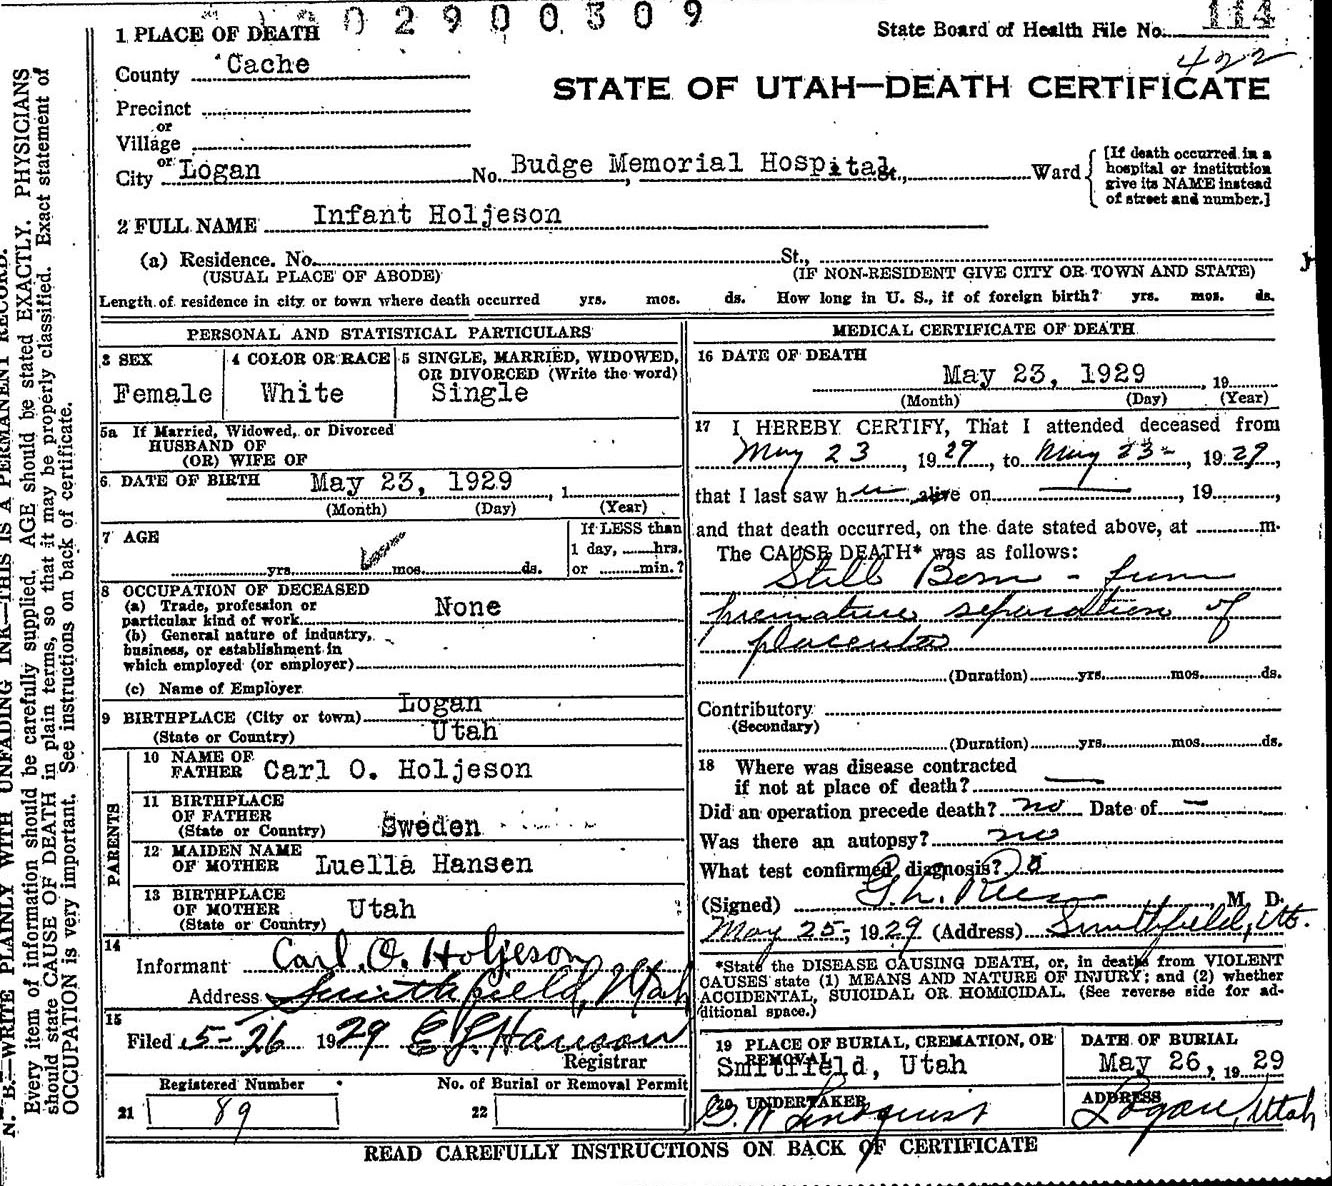 0 2 9 0 0 3 0 9
State Board of Health File No. 114
422
1 PLACE OF DEATH
County Cache
STATE OF UTAH—DEATH CERTIFICATE
Precinct
or
Village
or
City Logan No. Budge Memorial Hospital St., Ward
[If death occurred in a
hospital or institution
give its NAME instead
of street and number.]
2 FULL NAME Infant Holjeson
(a) Residence. No. St.,
(USUAL PLACE OF ABODE) (IF NON-RESIDENT GIVE CITY OR TOWN AND STATE)
Length of residence in city or town where death occurred yrs. mos. ds. How long in U. S., if of foreign birth? yrs. mos. ds.
PERSONAL AND STATISTICAL PARTICULARS
3 SEX
Female
4 COLOR OR RACE
White
5 SINGLE, MARRIED, WIDOWED,
OR DIVORCED (Write the word)
Single
5a If Married, Widowed, or Divorced
HUSBAND OF
(OR) WIFE OF
6 DATE OF BIRTH May 23, 1929, 1
(Month) (Day) (Year)
7 AGE
yrs. mos. ds.
If LESS than
1 day, hrs.
or min.?
8 OCCUPATION OF DECEASED
(a) Trade, profession or
particular kind of work None
(b) General nature of industry,
business, or establishment in
which employed (or employer)
(c) Name of Employer
9 BIRTHPLACE (City or town) Logan
(State or Country) Utah
PARENTS
10 NAME OF
FATHER Carl O. Holjeson
11 BIRTHPLACE
OF FATHER
(State or Country) Sweden
12 MAIDEN NAME
OF MOTHER Luella Hansen
13 BIRTHPLACE
OF MOTHER
(State or Country) Utah
14
Informant Carl. O. Holjeson
Address Smithfield, Utah
15
Filed 5-26 1929 E J Hanson
Registrar
Registered Number
21 89
No. of Burial or Removal Permit
22
MEDICAL CERTIFICATE OF DEATH
16 DATE OF DEATH
May 23, 1929, 19
(Month) (Day) (Year)
17 I HEREBY CERTIFY, That I attended deceased from
May 23, 1929, to May 23-, 1929,
that I last saw her alive on —, 19,
and that death occurred, on the date stated above, at m.
The CAUSE DEATH* was as follows:
Still Born - from
premature separation of
placenta
(Duration) yrs. mos. ds.
Contributory
(Secondary)
(Duration) yrs. mos. ds.
18 Where was disease contracted
if not at place of death? —
Did an operation precede death? no Date of —
Was there an autopsy? no
What test confirmed diagnosis?
(Signed) G. L. Rees, M. D.
May 25-, 1929 (Address) Smithfield, Ut.
*State the DISEASE CAUSING DEATH, or, in deaths from VIOLENT
CAUSES state (1) MEANS AND NATURE OF INJURY; and (2) whether
ACCIDENTAL, SUICIDAL OR HOMICIDAL. (See reverse side for ad-
ditional space.)
19 PLACE OF BURIAL, CREMATION, OR
REMOVAL
Smithfield, Utah
DATE OF BURIAL
May 26, 1929
20 UNDERTAKER
G. W Lindquist
ADDRESS
Logan, Utah
READ CAREFULLY INSTRUCTIONS ON BACK OF CERTIFICATE
N. B.—WRITE PLAINLY WITH UNFADING INK—THIS IS A PERMANENT RECORD.
Every item of information should be carefully supplied. AGE should be stated EXACTLY. PHYSICIANS
should state CAUSE OF DEATH in plain terms, so that it may be properly classified. Exact statement of
OCCUPATION is very important. See instructions on back of certificate.